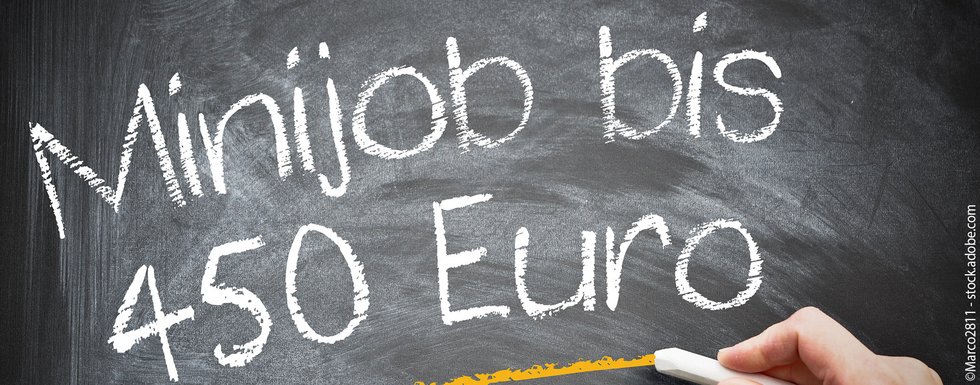 Minijob bis
450 Euro
©Marco2811 - stock.adobe.com